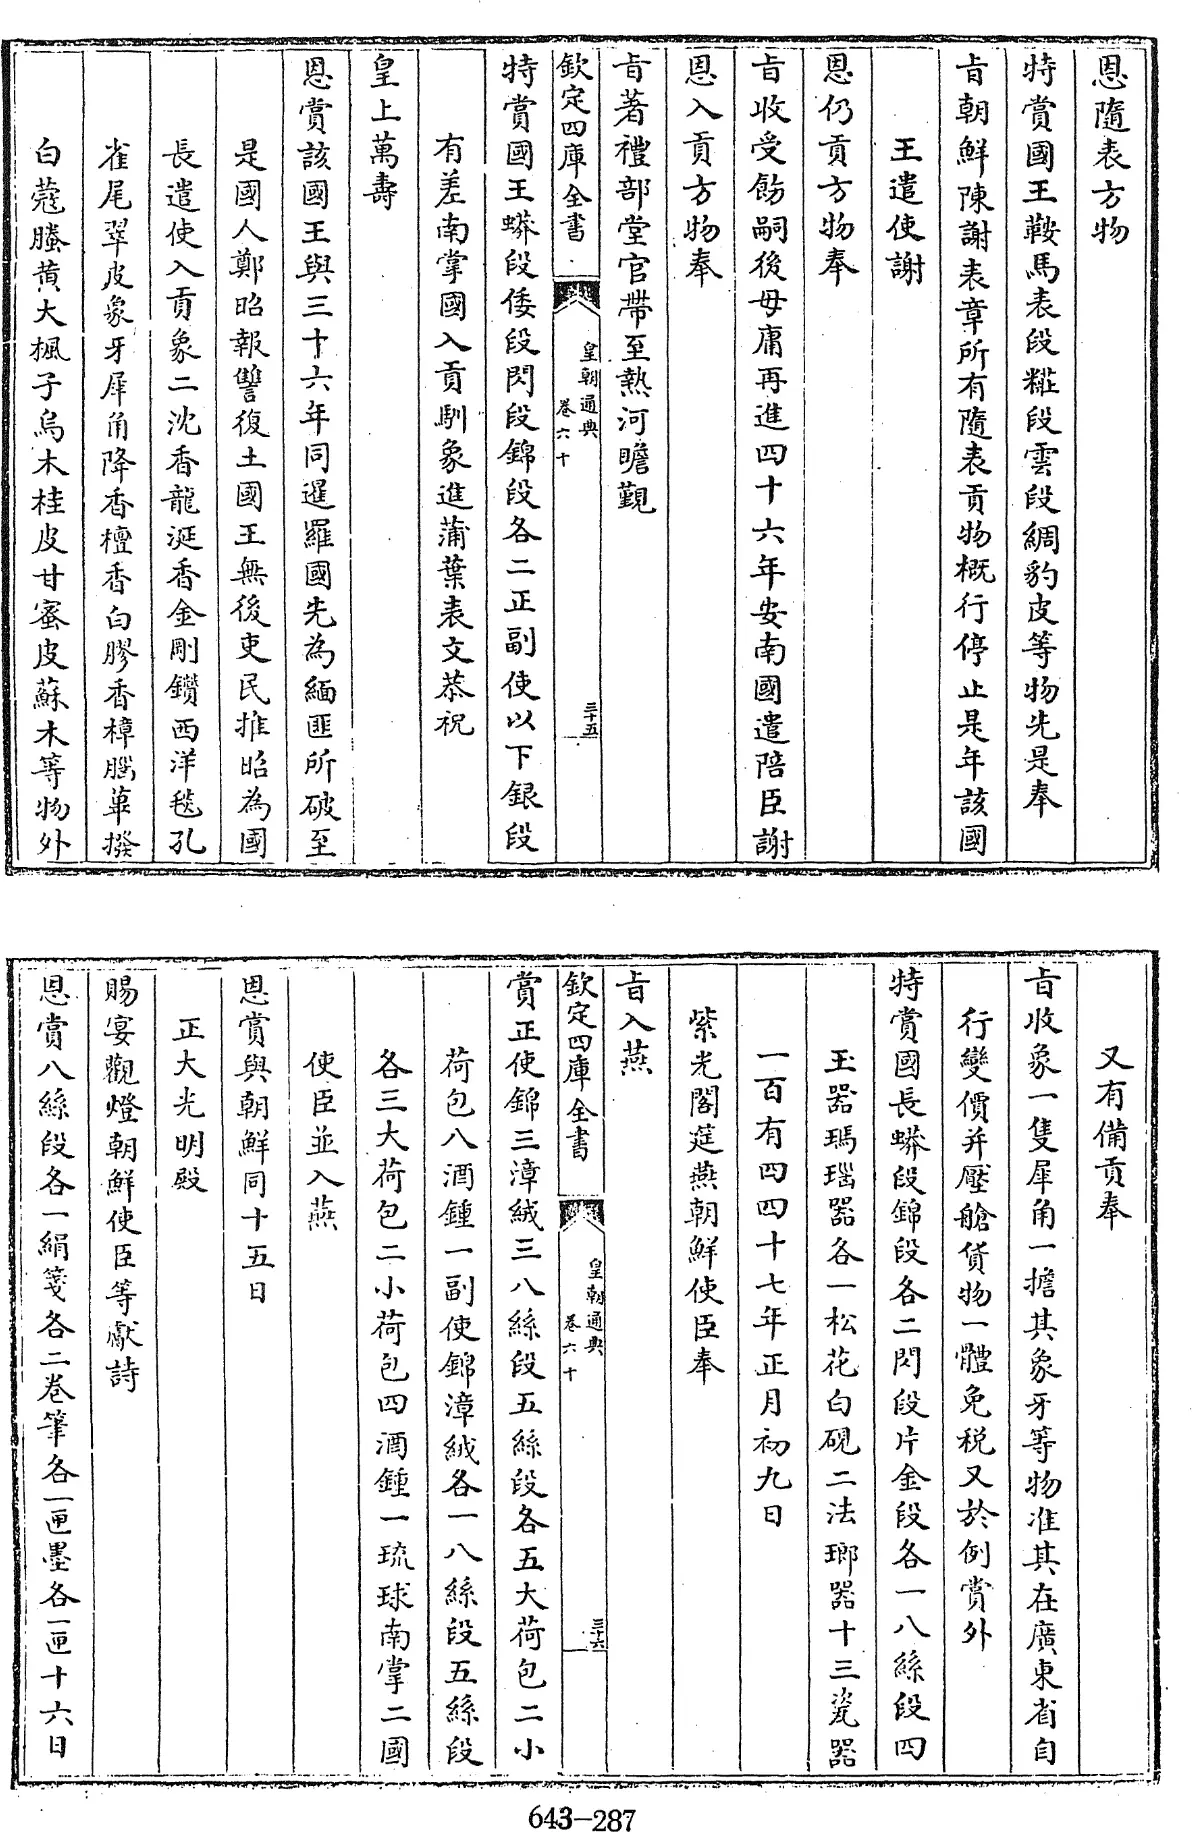 恩隨表方物
特賞國王鞍馬表段粧段雲段綢豹皮等物先是奉
旨朝鮮陳謝表章所有隨表貢物概行停止是年該國
王遣使謝
恩仍貢方物奉
旨收受飭嗣後毋庸再進四十六年安南國遣陪臣謝
恩入貢方物奉
旨著禮部堂官帶至熱河瞻覲
欽定四庫全書
皇朝通典
卷六十
三十五
特賞國王蟒段倭段閃段錦段各二正副使以下銀段
有差南掌國入貢馴象進蒲葉表文恭祝
皇上萬壽
恩賞該國王與三十六年同暹羅國先為緬匪所破至
是國人鄭昭報讐復土國王無後吏民推昭為國
長遣使入貢象二沈香龍涎香金剛鑽西洋毯孔
雀尾翠皮象牙犀角降香檀香白膠香樟腦蓽撥
白蔻螣黄大楓子烏木桂皮甘蜜皮蘇木等物外
又有備貢奉
旨收象一隻犀角一擔其象牙等物准其在廣東省自
行變價并壓艙貨物一體免税又於例賞外
特賞國長蟒段錦段各二閃段片金段各一八絲段四
玉器瑪瑙器各一松花白硯二法瑯器十三瓷器
一百有四四十七年正月初九日
紫光閣筵燕朝鮮使臣奉
旨入燕
欽定四庫全書
皇朝通典
卷六十
三十六
賞正使錦三漳絨三八絲段五絲段各五大荷包二小
荷包八酒鍾一副使錦漳絨各一八絲段五絲段
各三大荷包二小荷包四酒鍾一琉球南掌二國
使臣並入燕
恩賞與朝鮮同十五日
正大光明殿
賜宴觀燈朝鮮使臣等獻詩
恩賞八絲段各一絹箋各二卷筆各一匣墨各一匣十六日
643-287